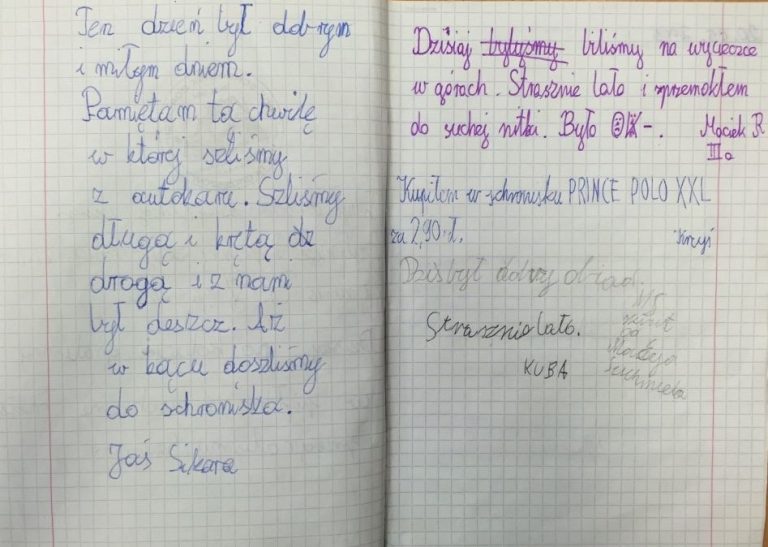 Ten dzień był dobrym
i miłym dniem.
Pamiętam tą chwilę
w której szliśmy
z autokaru. Szliśmy
długą i krętą dz
drogą i z nami
był deszcz. Aż
w kącu doszliśmy
do schroniska.
Jaś Sikora
Dzisiaj byliśmy biliśmy na wycieczce
w górach. Strasznie lało i przemokłem
do suchej nitki. Było OK-. Maciek R
III a
Kupiłem w schronisku PRINCE POLO XXL
za 2,90 zł. Krzyś
Dziś był dobry obiad.
Strasznie lało.
KUBA